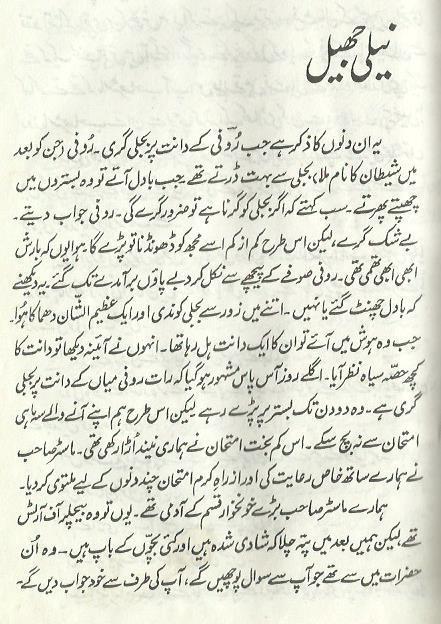 نیلی جھیل
یہ ان دنوں کا ذکر ہے جب رُوفی کے دانت پر بجلی گری۔ رُوفی (جن کو بعد
میں شیطان کا نام ملا) بجلی سے بہت ڈرتے تھے۔ جب بادل آتے تو وہ بستروں میں
چھپتے پھرتے۔ سب کہتے کہ اگر بجلی کو گرنا ہے تو ضرور گرے گی۔ روفی جواب دیتے۔
بے شک گرے، لیکن اس طرح کم از کم اسے مجھ کو ڈھونڈنا تو پڑے گا۔ ہوا یوں کہ بارش
ابھی ابھی تھمی تھی۔ روفی صوفے کے پیچھے سے نکل کر دبے پاؤں برآمدے تک گئے۔ یہ دیکھنے
کہ بادل چھنٹ گئے یا نہیں۔ اتنے میں زور سے بجلی کوندی اور ایک عظیم الشّان دھماکا ہوا۔
جب وہ ہوش میں آئے تو ان کا ایک دانت ہل رہا تھا۔ انہوں نے آئینہ دیکھا تو دانت کا
کچھ حصّہ سیاہ نظر آیا۔ اگلے روز آس پاس مشہور ہو گیا کہ رات روفی میاں کے دانت پر بجلی
گری ہے۔ وہ دو دن تک بستر پر پڑے رہے لیکن اس طرح ہم اپنے آنے والے سہ ماہی
امتحان سے نہ بچ سکے۔ اس کم بخت امتحان نے ہماری نیند اُڑا رکھی تھی۔ ماسٹر صاحب
نے ہمارے ساتھ خاص رعایت کی اور از راہِ کرم امتحان چند دنوں کے لیے ملتوی کر دیا۔
ہمارے ماسٹر صاحب بڑے خونخوار قسم کے آدمی تھے۔ یوں تو وہ بیچلر آف آرٹس
تھے، لیکن ہمیں بعد میں پتہ چلا کہ شادی شدہ ہیں اور کئی بچّوں کے باپ ہیں۔ وہ اُن
حضرات میں سے تھے جو آپ سے سوال پوچھیں گے، آپ کی طرف سے خود جواب دیں گے۔